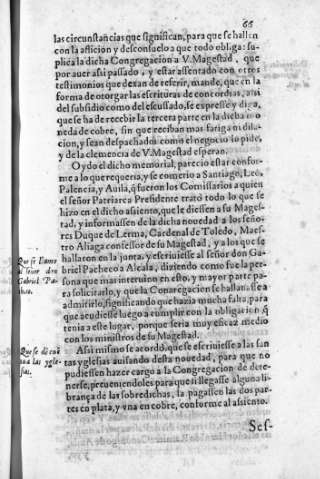 66
las circunstãcias que significan, para que se hallen
con la aflicion y desconsuelo a que todo obliga: su-
plica la dicha Congregacion a V. Magestad, que
por auer assi passado, y estar assentado con otros
testimonios que dexan de referir, mande, que en la
forma de otorgar las escrituras de concordias, assi
del subsidio como del escusado, se expresse y diga,
que se ha de recebir la tercera parte en la dicha mo
neda de cobre, sin que reciban mas fatiga ni dila-
cion, y sean despachados como el negocio lo pide,
y de la clemencia de V. Magestad esperan.
Oydo el dicho memorial, parecio estar confor-
me a lo que requeria, y se cometio a Santiago, Leõ,
Palencia, y Auila, q̃ fueron los Comissarios a quien
el señor Patriarca Presidente trató todo lo que se
hizo en el dicho asiento, que le diessen a su Mages-
tad, y informassen de la dicha nouedad a los seño-
res Duque de Lerma, Cardenal de Toledo, Maes-
tro Aliaga confessor de su Magestad, y a los que se
hallaron en la junta, y escriuiesse al señor don Ga-
briel Pacheco a Alcala, diziendo como fue la per-
sona que mas interuino en esto, y mayor parte pa-
ra solicitarlo, y que la Congregacion se hallaua
admitirlo, significando que hazia mucha falta, para
que acudiesse luego a cumplir con la obligacion q̃
tenia a este lugar, porque seria muy eficaz medio
con los ministros de su Magestad.
Que se llame
al señor don
Gabriel Pa-
checo.
Assi mismo se acordó, que se escriuiesse a las san
tas yglesias auisando desta nouedad, para que no
pudiessen hazer cargo a la Congregacion de dete-
nerse, preueniendoles para que si llegasse alguna li-
brança de las sobredichas, la pagassen las dos par-
tes en plata, y vna en cobre, conforme al asiento.
Que se dè cuẽ
ta a las ygle-
sias.
Ses-